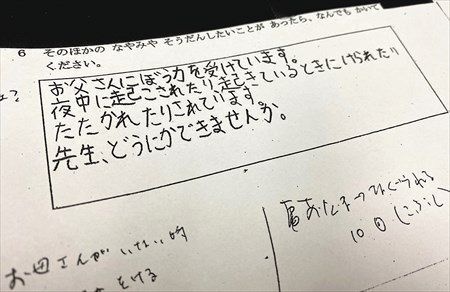 6 そのほかの なやみや そうだんしたいことが あったら、なんでも かいて
ください。
お父さんにぼう力を受けています。
夜中に起こされたり起きているときにけられたり
たたかれたりされています。
先生、どうにかできませんか。
お母さんがいない的
10日